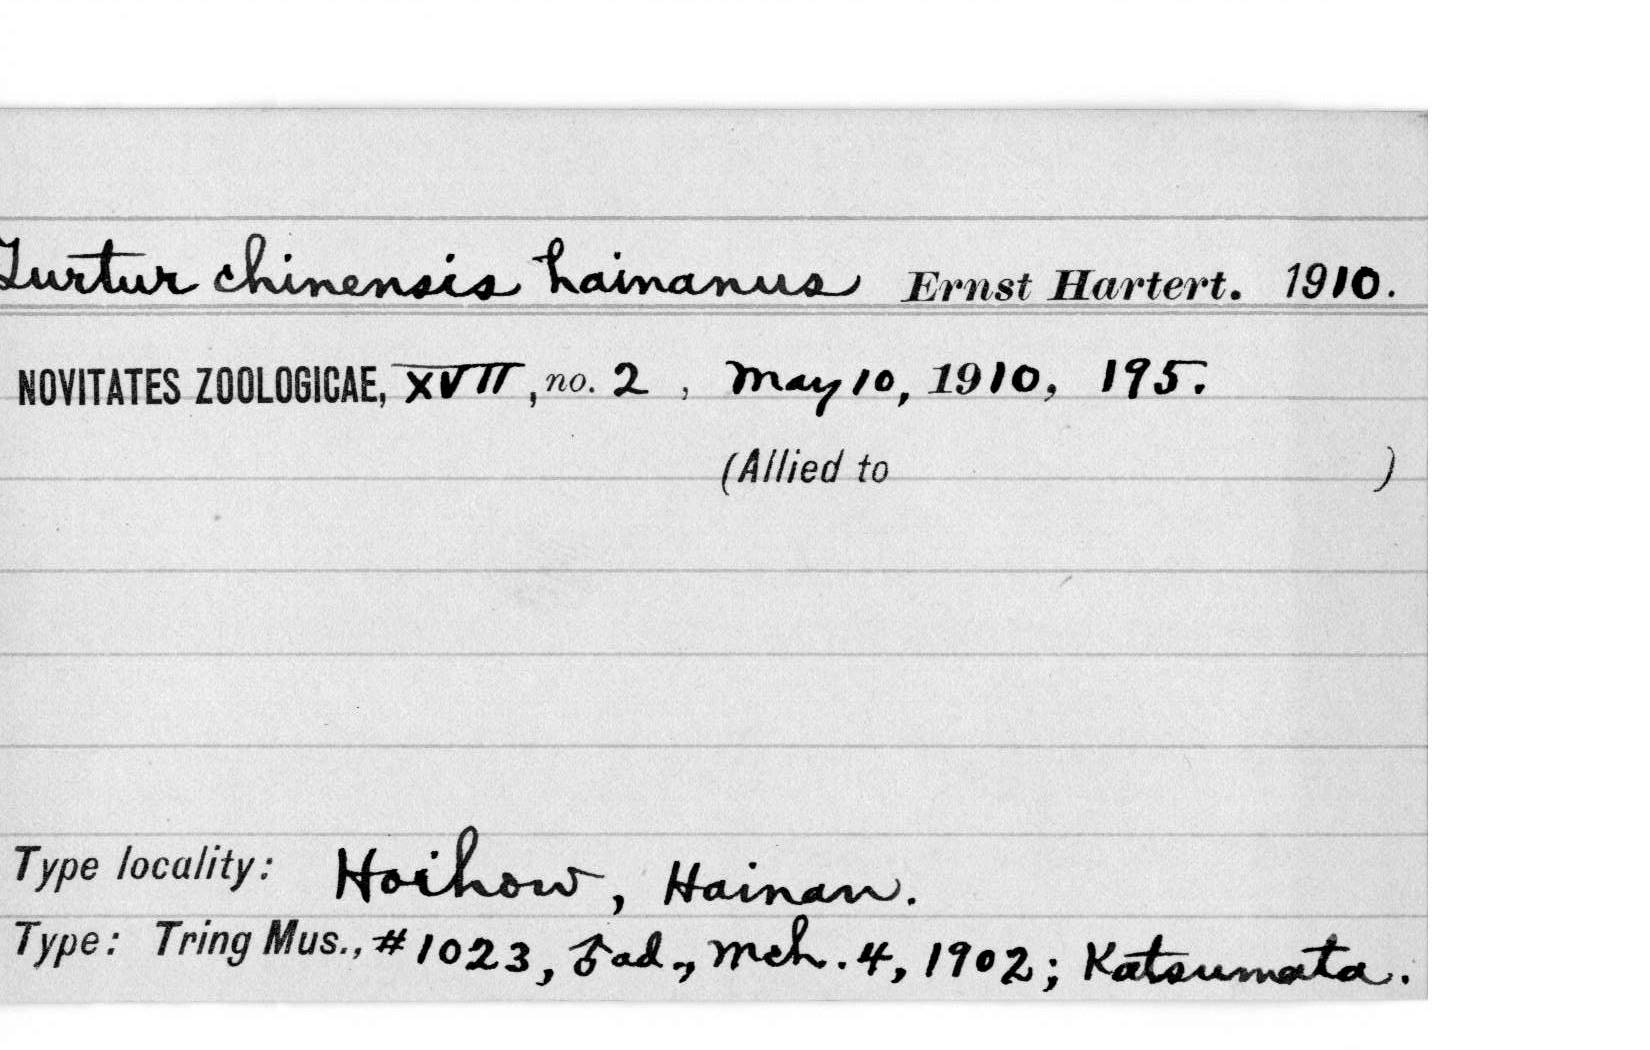 Turtur chinensis hainanus Ernst Hartert. 1910.
NOVITATES ZOOLOGICAE, XVII, no. 2, May 10, 1910, 195.
(Allied to )
Type locality: Hoihow, Hainan.
Type: Tring Mus., #1023, ♂ad., Mch. 4, 1902; Katsumata.